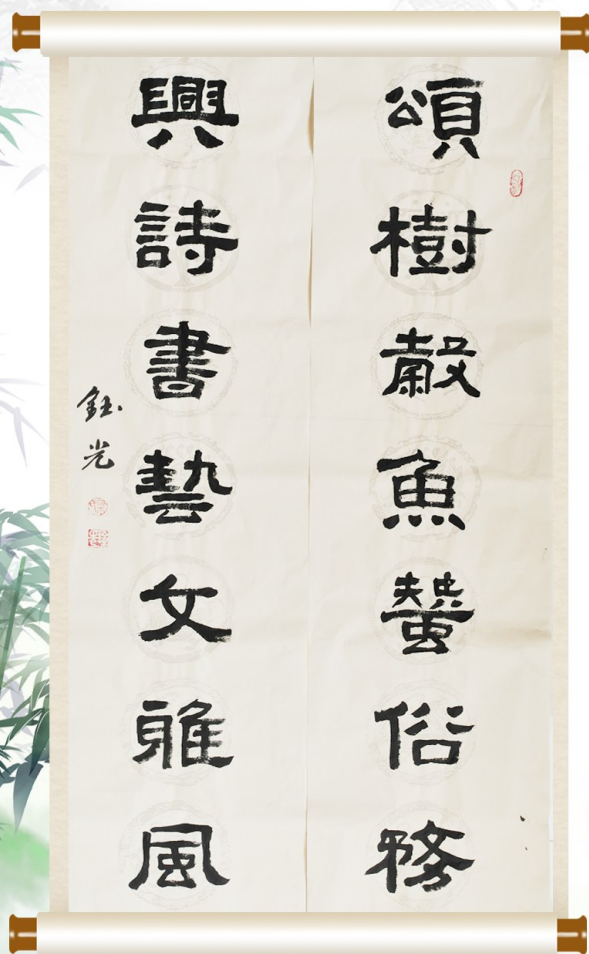 頌樹穀魚蠶俗務
興詩書藝文雅風
鈺光